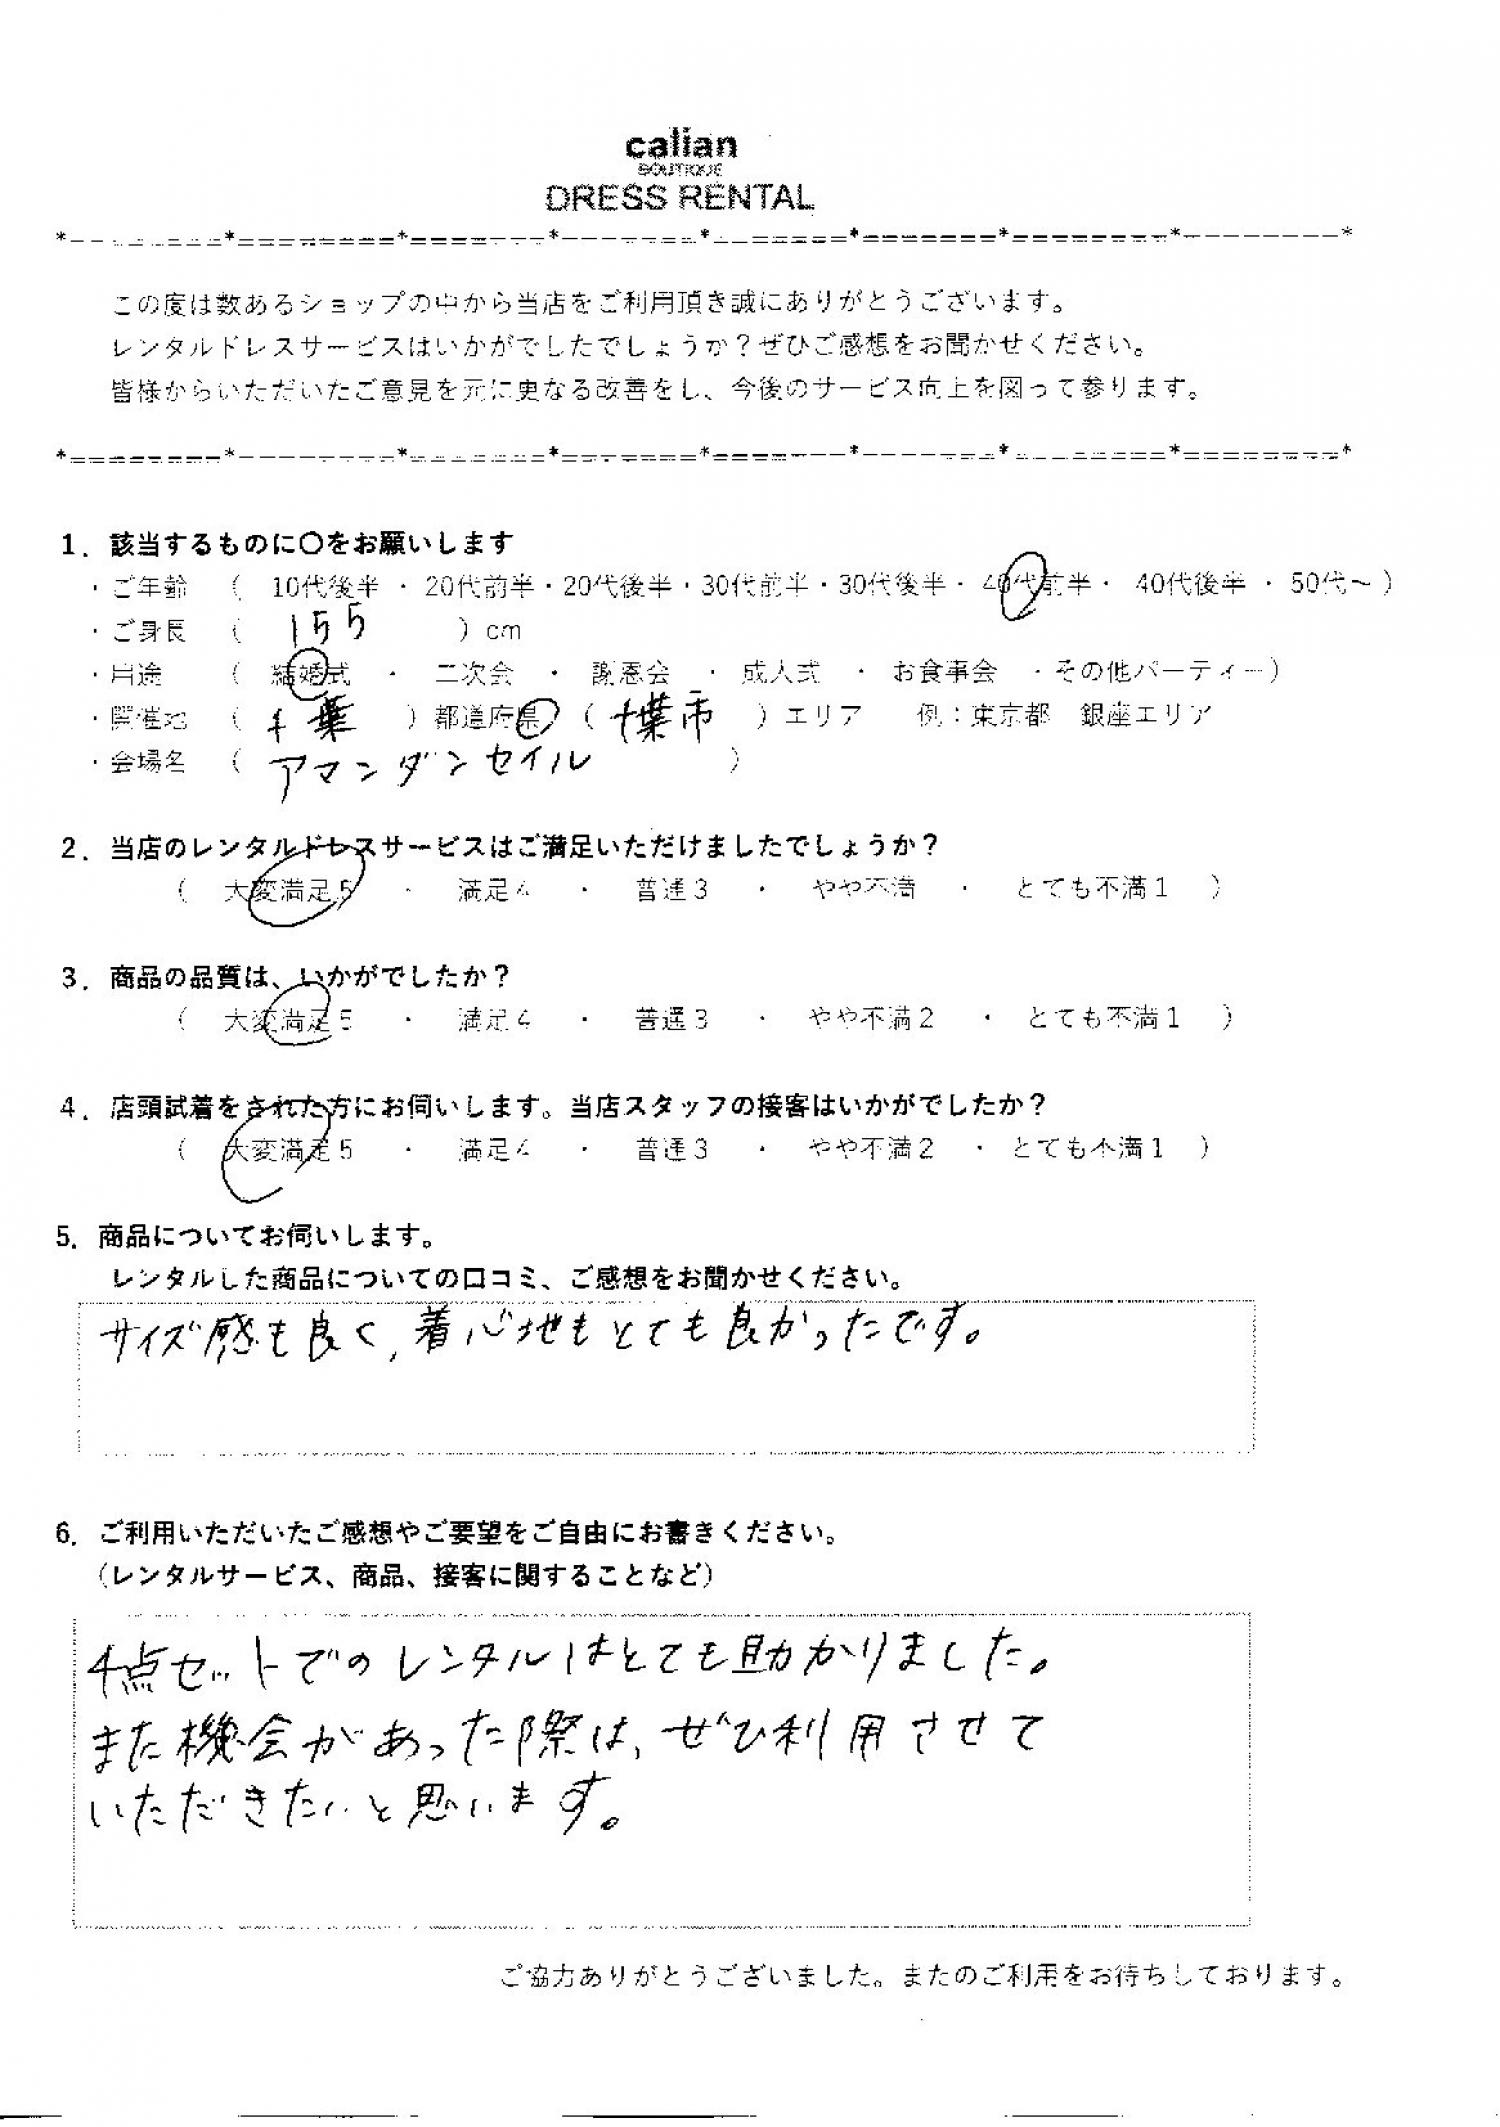 calian
BOUTIQUE
DRESS RENTAL
この度は数あるショップの中から当店をご利用頂き誠にありがとうございます。
レンタルドレスサービスはいかがでしたでしょうか？ぜひご感想をお聞かせください。
皆様からいただいたご意見を元に更なる改善をし、今後のサービス向上を図って参ります。
1．該当するものに〇をお願いします
・ご年齢 （ 10代後半 ・ 20代前半・20代後半・30代前半・30代後半・ 40代前半・ 40代後半 ・ 50代～ ）
・ご身長 （ 155 ）cm
・用途 （ 結婚式 ・ 二次会 ・ 謝恩会 ・ 成人式 ・ お食事会 ・その他パーティー）
・開催地 （ 千葉 ）都道府県 （ 千葉市 ）エリア 例：東京都 銀座エリア
・会場名 （ アマンダンセイル ）
2．当店のレンタルドレスサービスはご満足いただけましたでしょうか？
（ 大変満足5 ・ 満足4 ・ 普通3 ・ やや不満 ・ とても不満1 ）
3．商品の品質は、いかがでしたか？
（ 大変満足5 ・ 満足4 ・ 普通3 ・ やや不満2 ・ とても不満1 ）
4．店頭試着をされた方にお伺いします。当店スタッフの接客はいかがでしたか？
（ 大変満足5 ・ 満足4 ・ 普通3 ・ やや不満2 ・ とても不満1 ）
5．商品についてお伺いします。
レンタルした商品についての口コミ、ご感想をお聞かせください。
サイズ感も良く、着心地もとても良かったです。
6．ご利用いただいたご感想やご要望をご自由にお書きください。
（レンタルサービス、商品、接客に関することなど）
4点セットでのレンタルはとても助かりました。
また機会があった際は、ぜひ利用させて
いただきたいと思います。
ご協力ありがとうございました。またのご利用をお待ちしております。